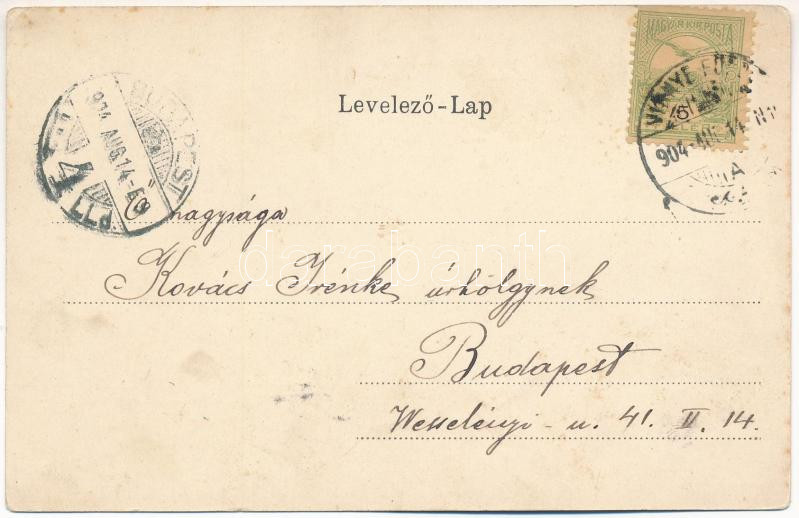 MAGYAR KIR. POSTA
Levelező-Lap
BUDAPEST
904 AUG. 14
4
904
Ő nagysága
Kovács Irénke úrhölgynek
Budapest
Wesselényi - u. 41. II. 14.
darabanth